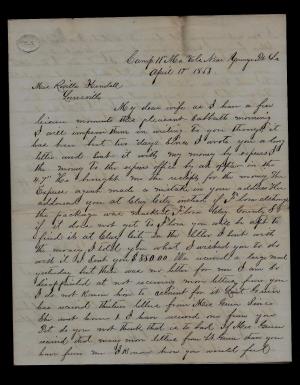 Camp 11th Me Vols Near Youngs Pt La
April 1st 1863
Mrs Rosilla Kendall
My dear wife as I have a few
leisure moments this pleasant Sabbath morning
I will improve them in writing to you though it
has been but two days since I wrote you a long
letter and sent it with my money by express
the money to the express office by a captain in the
47" He brought me the receipt for the money the
Express agent made a mistake in your address He
addressed you at City instead of
the package was marked County
if it does not get to you are to
find it at City but in the letter I sent with
the money I told you what I wished you to do
with it I sent you $35.00 We received a large mail
yesterday but there was no letter for me I am so
disappointed at not receiving more letters from you
I do not know how to account for it
has received thirteen letters from Mrs Green since
she went home & I have received one from you
Pet do you not think that is to bad If Mrs Green
received that many more letters from Lt Green than you
have from me I know how you would feel